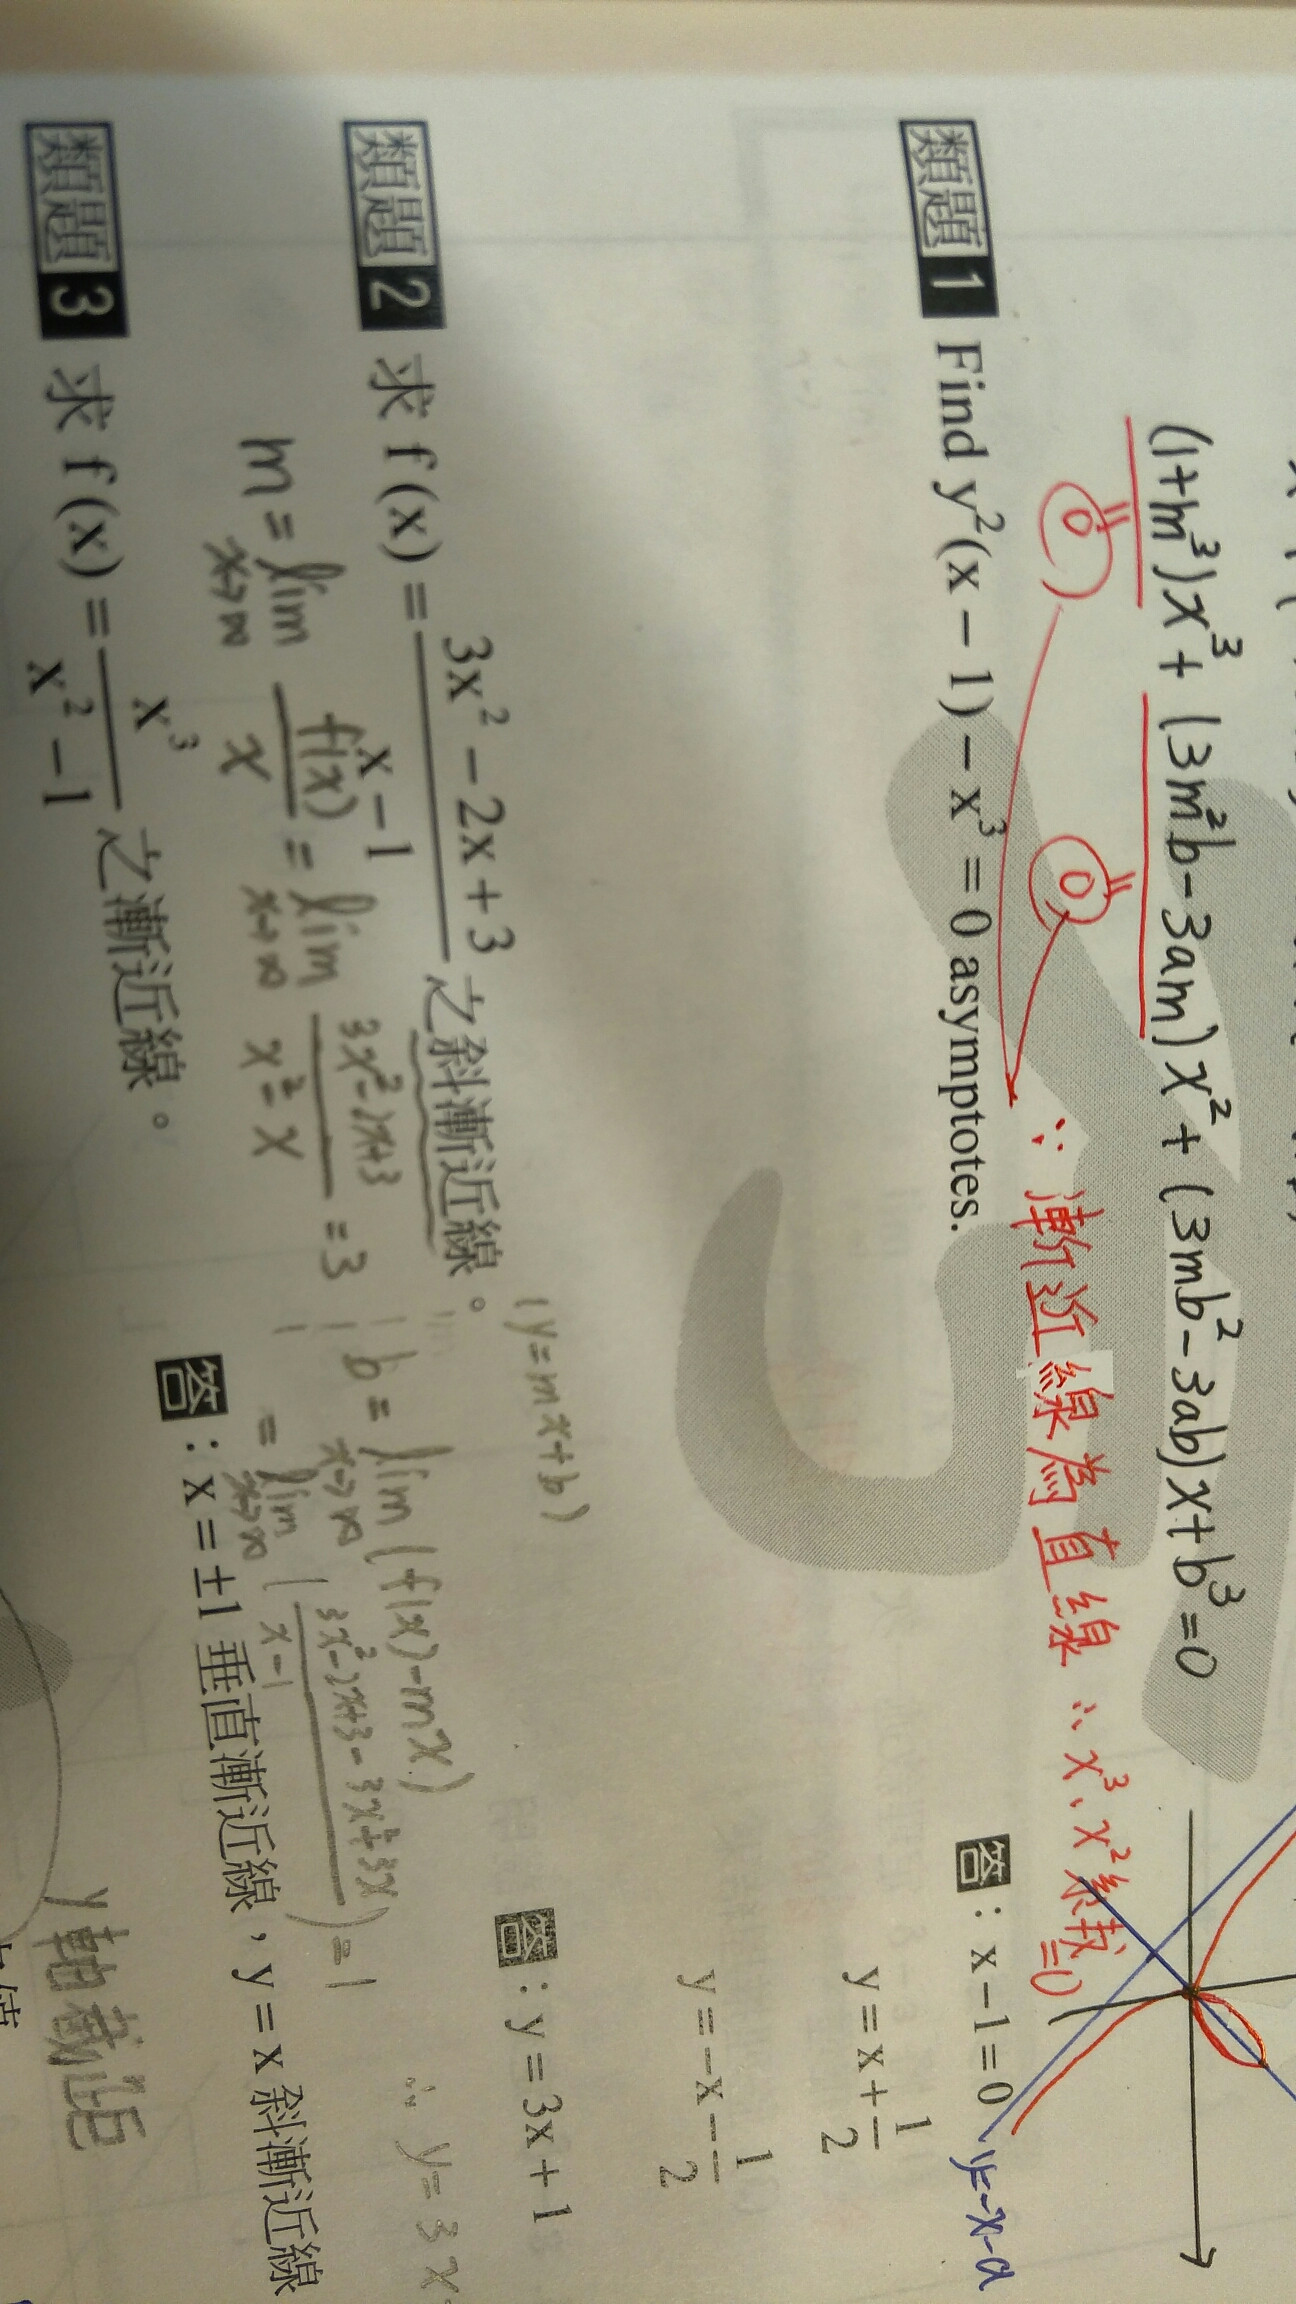 (1+m³)x³ + (3m²b-3am)x² + (3mb²-3ab)x+b³=0
0 0 ∵ 漸近線為直線 ∴ x³、x²係數=0
類題 1 Find y²(x − 1) − x³ = 0 asymptotes.
答：x − 1 = 0
y=-x-a
y = x + 1/2
y = −x − 1/2
(y=mx+b)
類題 2 求 f (x) = (3x² − 2x + 3)/(x − 1) 之斜漸近線。
答：y = 3x + 1
m = lim x→∞ f(x)/x = lim x→∞ (3x²-2x+3)/(x²-x) = 3
b = lim x→∞ (f(x)-mx)
= lim x→∞ ((3x²-2x+3-3x²+3x)/(x-1)) = 1
∴ y = 3x
類題 3 求 f (x) = x³/(x² − 1) 之漸近線。
答：x = ±1 垂直漸近線，y = x 斜漸近線
y軸截距